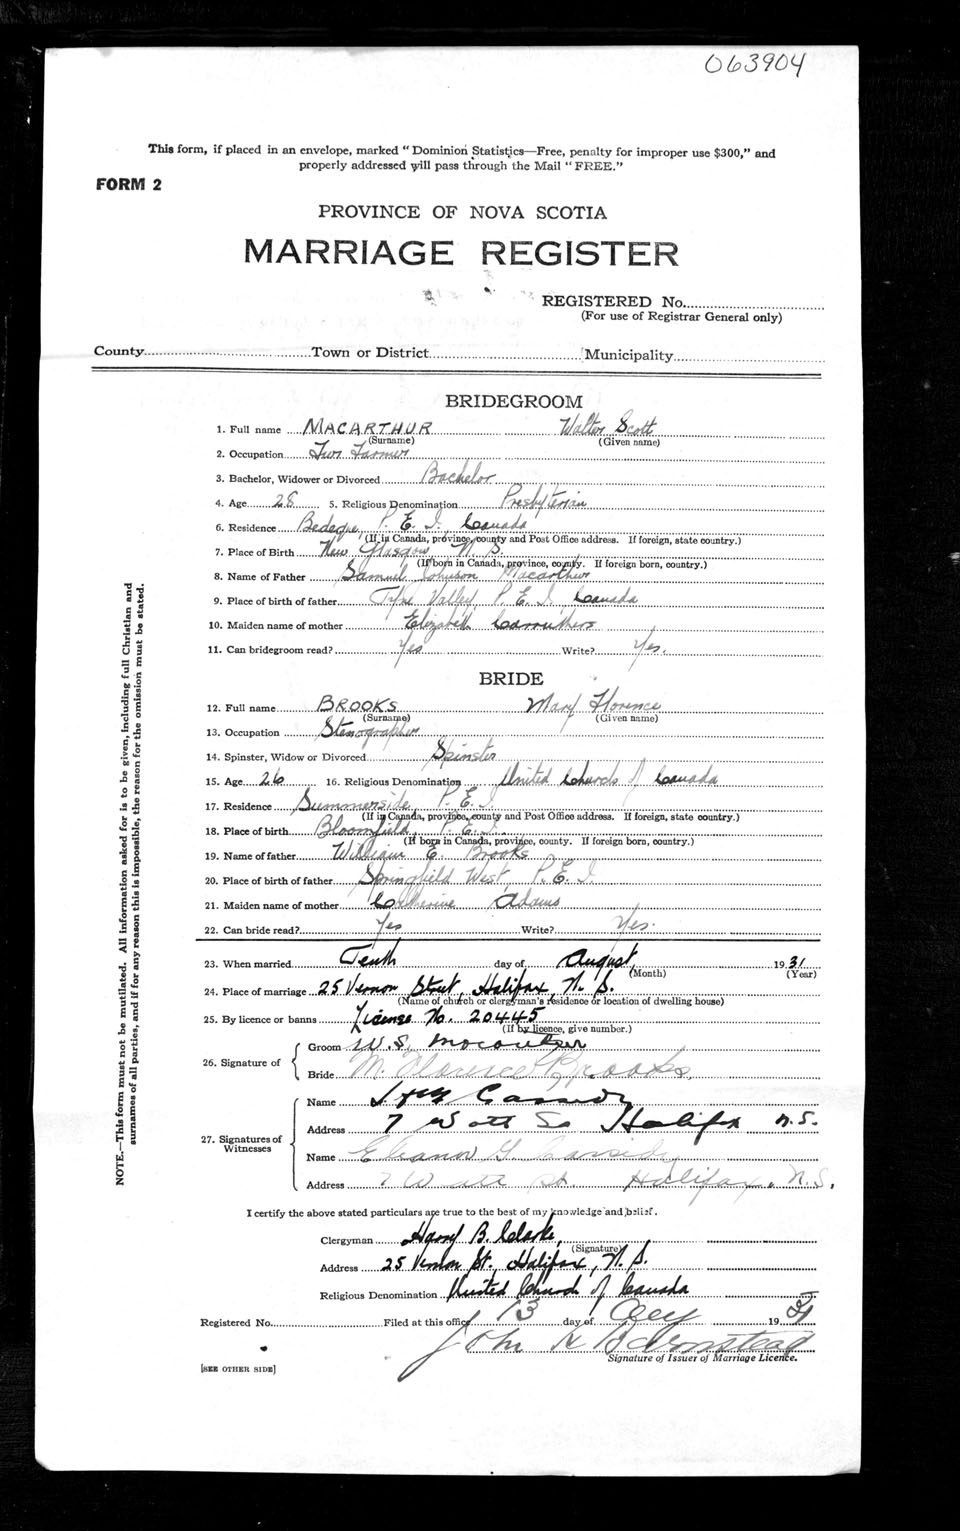 063904
This form, if placed in an envelope, marked "Dominion Statistics—Free, penalty for improper use $300," and
properly addressed will pass through the Mail "FREE."
FORM 2
PROVINCE OF NOVA SCOTIA
MARRIAGE REGISTER
REGISTERED No.
(For use of Registrar General only)
County Town or District Municipality
BRIDEGROOM
1. Full name MACARTHUR Walter Scott
(Surname) (Given name)
2. Occupation Fur Farmer
3. Bachelor, Widower or Divorced Bachelor
4. Age 28 5. Religious Denomination Presbyterian
6. Residence Bedeque, P. E. I. Canada
(If in Canada, province, county and Post Office address. If foreign, state country.)
7. Place of Birth New Glasgow N. S.
(If born in Canada, province, county. If foreign born, country.)
8. Name of Father Samuel Johnson Macarthur
9. Place of birth of father Tyne Valley, P. E. I, Canada
10. Maiden name of mother Elizabeth Carruthers
11. Can bridegroom read? Yes Write? Yes.
BRIDE
12. Full name BROOKS Mary Florence
(Surname) (Given name)
13. Occupation Stenographer
14. Spinster, Widow or Divorced Spinster
15. Age 26 16. Religious Denomination United Church of Canada
17. Residence Summerside, P. E. I.
(If in Canada, province, county and Post Office address. If foreign, state country.)
18. Place of birth Bloomfield, P. E. I.
(If born in Canada, province, county. If foreign born, country.)
19. Name of father William E. Brooks
20. Place of birth of father Springfield West, P. E. I.
21. Maiden name of mother Catherine Adams
22. Can bride read? Yes Write? Yes.
23. When married Tenth day of August, 1931
(Month) (Year)
24. Place of marriage 25 Vernon Street, Halifax, N. S.
(Name of church or clergyman's residence or location of dwelling house)
25. By licence or banns License No. 20445
(If by licence, give number.)
26. Signature of
Groom W. S. Macarthur
Bride M. Florence Brooks.
27. Signatures of
Witnesses
Name Cassidy
Address 7 Watt St Halifax N.S.
Name Eleanor G. Cassidy
Address 7 Watt St. Halifax, N.S.
I certify the above stated particulars are true to the best of my knowledge and belief.
Clergyman Harry B. Clarke,
(Signature)
Address 25 Vernon St., Halifax, N. S.
Religious Denomination United Church of Canada
Registered No. Filed at this office 13 day of Aug 1931
John
Signature of Issuer of Marriage Licence.
[SEE OTHER SIDE]
NOTE.—This form must not be mutilated. All information asked for is to be given, including full Christian and
surnames of all parties, and if for any reason this is impossible, the reason for the omission must be stated.